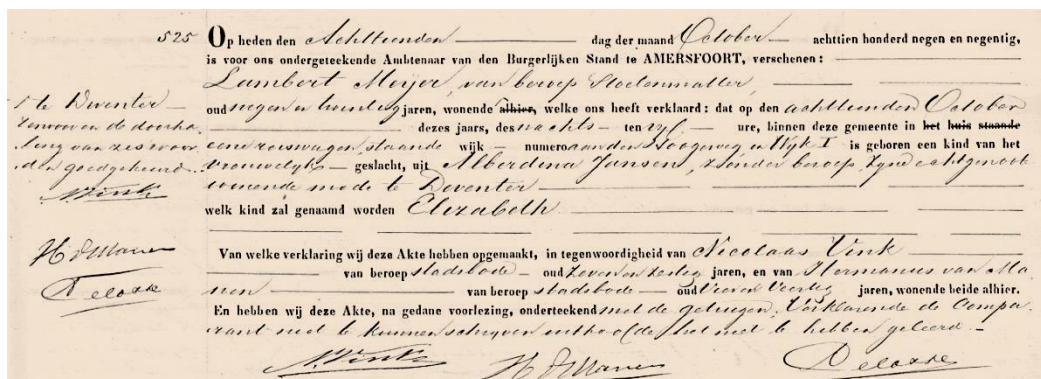 525
Op heden den Achttienden dag der maand October achttien honderd negen en negentig,
is voor ons ondergeteekende Ambtenaar van den Burgerlijken Stand te AMERSFOORT, verschenen :
Lambert Meijer, van beroep Stoelenmatter,
oud negen en twintig jaren, wonende alhier, welke ons heeft verklaard : dat op den achttienden October
dezes jaars, des nachts ten vijf ure, binnen deze gemeente in het huis staande
eene reiswagen, staande wijk numero aan den Hoogeweg en Wijk I is geboren een kind van het
vrouwelijk geslacht, uit Alberdina Jansen, zonder beroep, zijne echtgenoot
wonende mede te Deventer
welk kind zal genaamd worden Elizabeth
Van welke verklaring wij deze Akte hebben opgemaakt, in tegenwoordigheid van Nicolaas Vink
van beroep stadsbode oud zeven en zestig jaren, en van Hermanus van Ma
nen van beroep stadsbode oud vier en veertig jaren, wonende beide alhier.
En hebben wij deze Akte, na gedane voorlezing, onderteekend met de getuigen. Verklarende de Compa
rant niet te kunnen schrijven uithoofde, het niet te hebben geleerd.
te Deventer
en de doorha
ling van zes woor
den goedgekeurd
N. Vink
H v Manen
N. Vink H v Manen